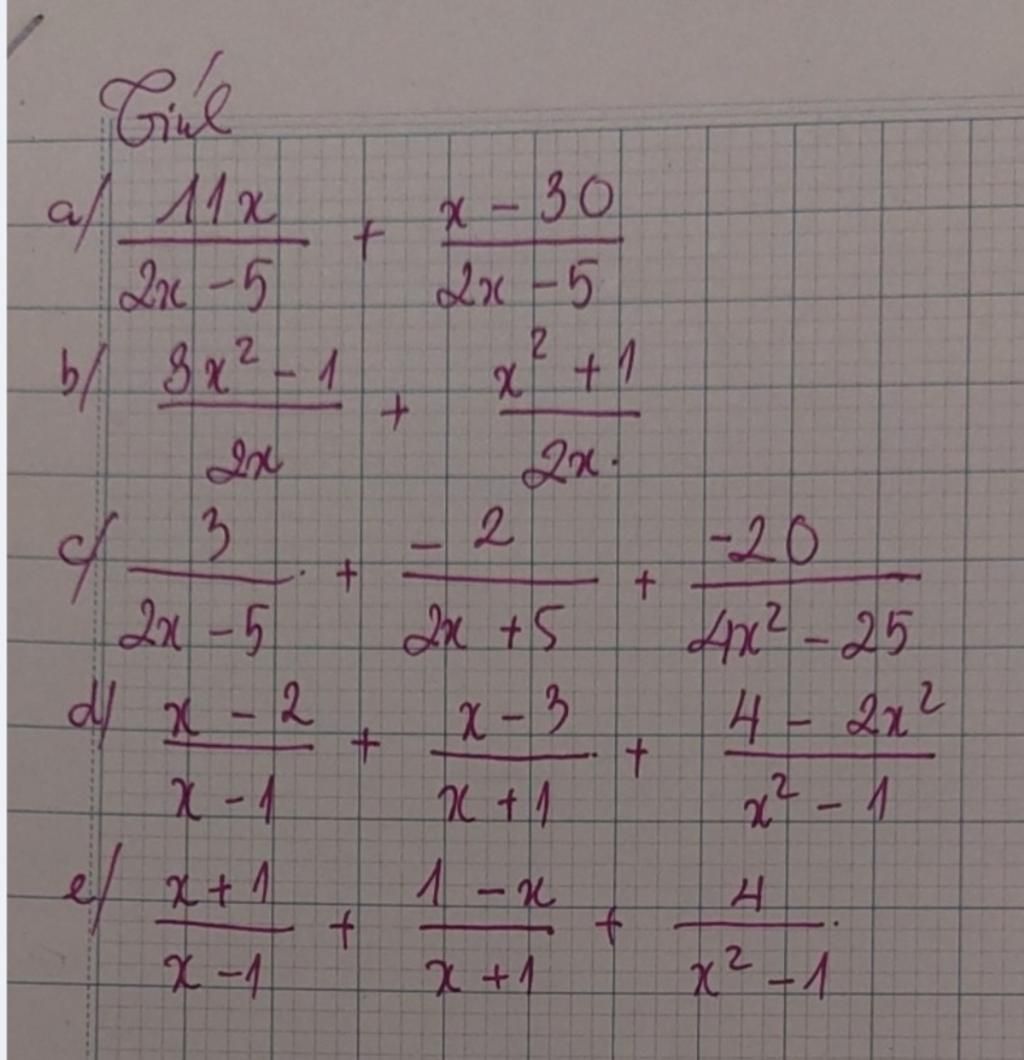 Tính
a/ 11x / (2x - 5) + (x - 30) / (2x - 5)
b/ (3x² - 1) / 2x + (x² + 1) / 2x.
c/ 3 / (2x - 5) + -2 / (2x + 5) + -20 / (4x² - 25)
d/ (x - 2) / (x - 1) + (x - 3) / (x + 1) + (4 - 2x²) / (x² - 1)
e/ (x + 1) / (x - 1) + (1 - x) / (x + 1) + 4 / (x² - 1).